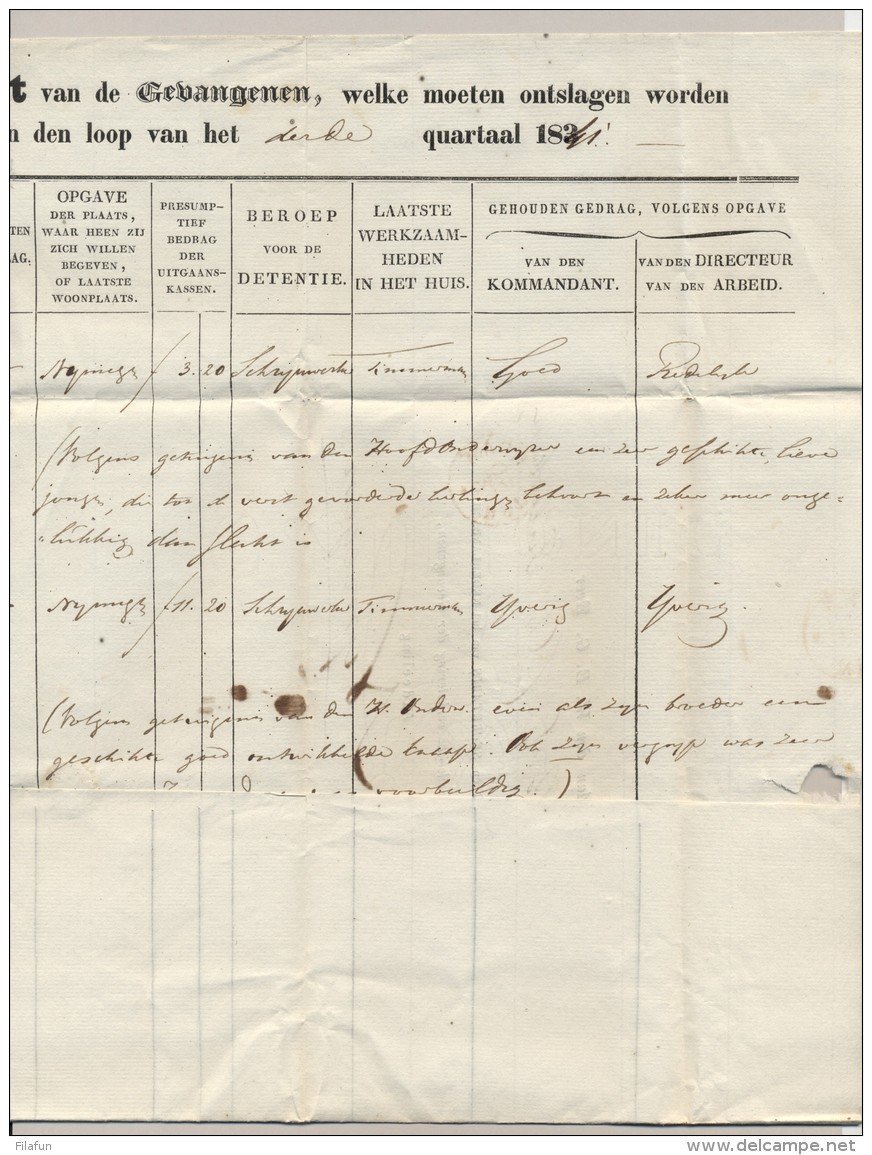 t van de Gevangenen, welke moeten ontslagen worden
n den loop van het derde quartaal 1841.
TEN
AG.
OPGAVE
DER PLAATS,
WAAR HEEN ZIJ
ZICH WILLEN
BEGEVEN,
OF LAATSTE
WOONPLAATS.
PRESUMP-
TIEF
BEDRAG
DER
UITGAANS-
KASSEN.
BEROEP
VOOR DE
DETENTIE.
LAATSTE
WERKZAAM-
HEDEN
IN HET HUIS.
GEHOUDEN GEDRAG, VOLGENS OPGAVE
VAN DEN
KOMMANDANT.
VAN DEN DIRECTEUR
VAN DEN ARBEID.
Nymegen f 3. 20 Schrijnwerker Timmerman Goed Redelyk
(Volgens getuigenis van den Hoofdonderwyzer een zeer geschikte, lieve
jongen, die tot de verst gevorderde leerlingen behoort en zeker meer onge=
=lukkig dan slecht is
Nymegen f 11. 20 Schrijnwerker Timmerman Yverig Yverig.
(Volgens getuigenis van den H. Onderw. even als zyn broeder een
geschikte goed ontwikkelde knaap. Ook zyn vergryp was zeer
voorbeeldig.)
Filafun
www.delcampe.net